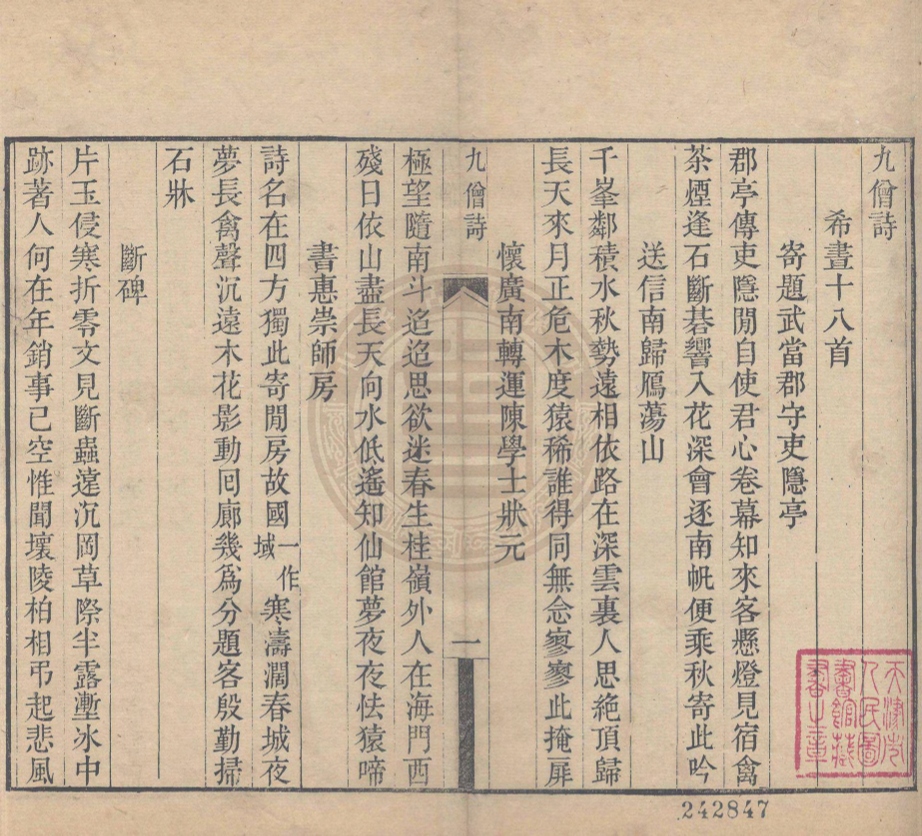 九僧詩
希晝十八首
寄題武當郡守吏隱亭
郡亭傳吏隱閒自使君心卷幕知來客懸燈見宿禽
茶煙逢石斷碁響入花深會逐南帆便乘秋寄此吟
送信南歸鴈蕩山
千峯鄰積水秋勢遠相依路在深雲裏人思絶頂歸
長天來月正危木度猿稀誰得同無念寥寥此掩扉
懷廣南轉運陳學士狀元
九僧詩
一
極望隨南斗迢迢思欲迷春生桂嶺外人在海門西
殘日依山盡長天向水低遙知仙館夢夜夜怯猿啼
書惠崇師房
詩名在四方獨此寄閒房故國一作域寒濤濶春城夜
夢長禽聲沉遠木花影動囘廊幾爲分題客殷勤掃
石牀
斷碑
片玉侵寒折零文見斷蟲遠沉岡草際半露壍冰中
跡著人何在年銷事已空惟聞壞陵柏相弔起悲風
天津市
人民圖
書館藏
書之章
242847